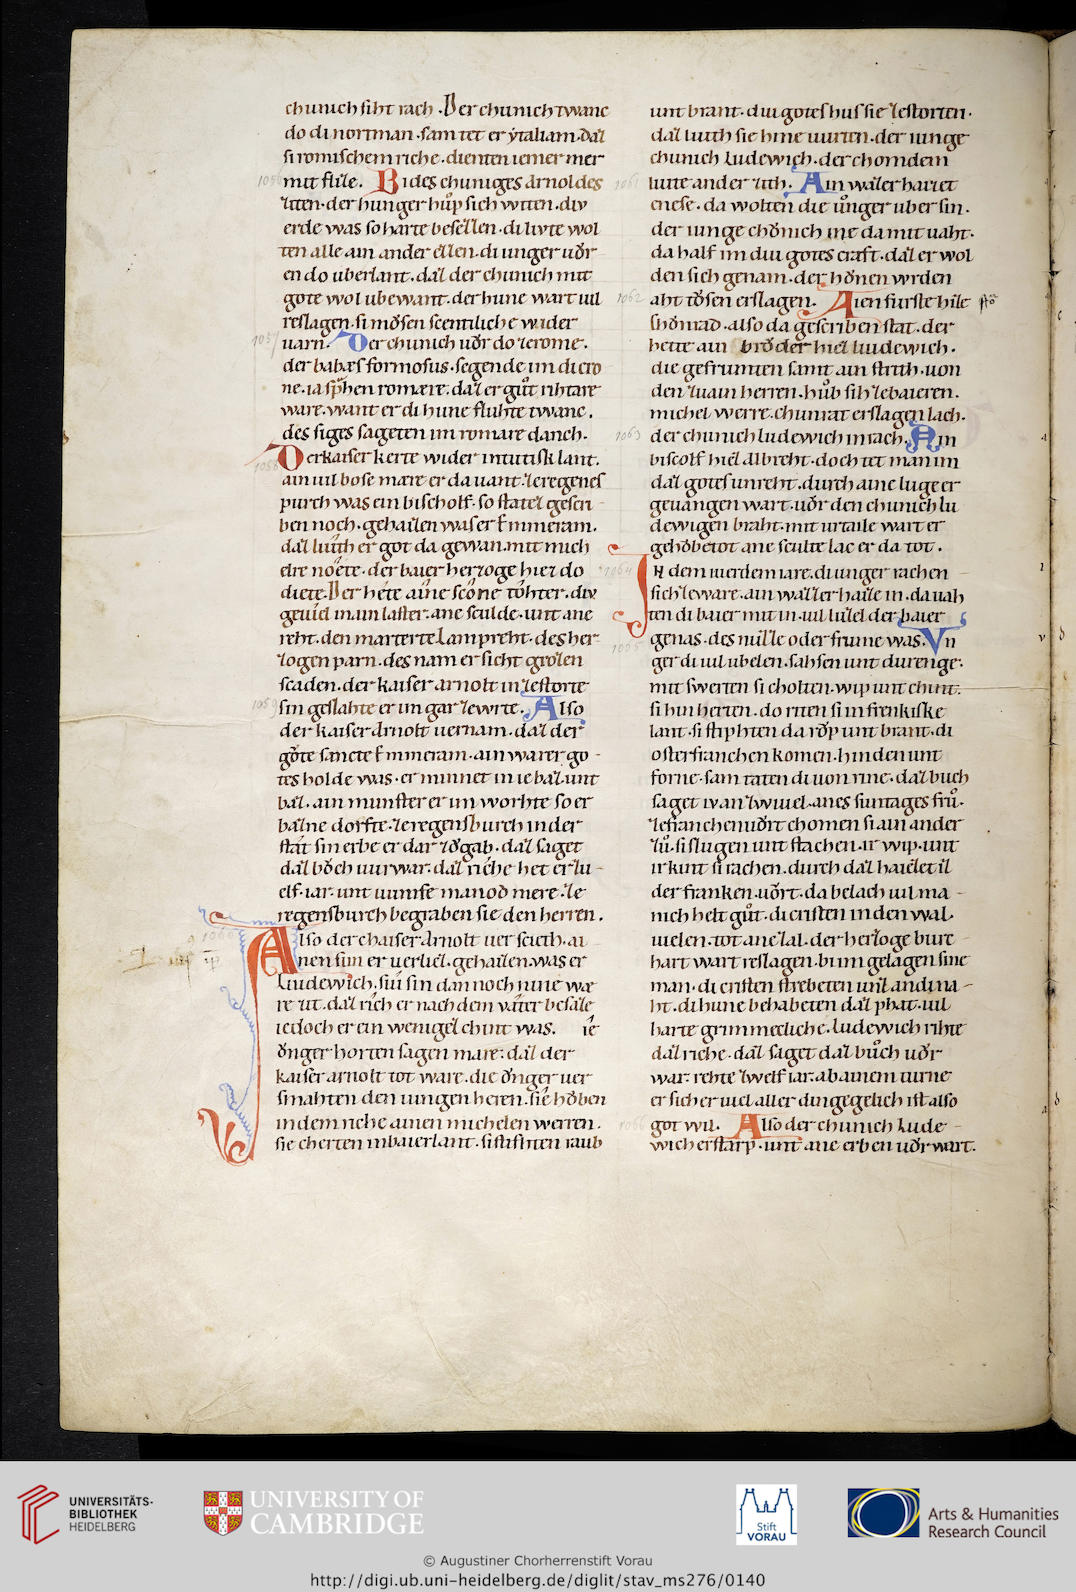 chunich siht rach. Der chunich twanc
do di norman. sam tet er ẏtaliam. daz
si romischem riche. dienten iemer mer
mit flize. Bi des chuniges Arnoldes
ziten. der hunger hůp sich witen. div
erde was so harte besezzen. di livte wol
ten alle ain ander ezzen. di unger uǒr
en do uberlant. daz der chunich mit
gote wol ubewant. der hune wart uil
reslagen. si můsen scentiliche wider
uarn. Der chunich uǒr do ze rome.
der babæs formosus. segende im di cro
ne. ia sp̃chen romære. daz er gůt rihtare
ware. want er di hune fluhte twanc.
des siges sageten im romare danch.
Der kaiser kerte wider in tutisk lant.
ain uil bose mære er da uant. ze regenes
purch was ein bischolf. so statez gescri
ben noch. gehaizen was er Emmeram.
daz luith er got da gewan. mit mich
elre noete. der baier herzoge hiez do
diete. Der hete aine scone tohter. div
geuiel in ain laster. ane sculde. unt ane
reht. den marterte Lampreht. des her
zogen parn. des nam er sicht grozen
scaden. der kaiser arnolt in zestorte
sin geslahte er im gar zewrte. Also
der kaiser Arnolt uernam. daz der
gǒte sancte Emmeram. ain warer go
tes holde was. er minnet in ie baz. unt
baz. ain munster er im worhte so er
bazne dorfte. ze regensburch in der
stat sin erbe er dar zǒ gab. daz saget
daz bǒch uur war. daz riche het er zu
elf. iar. unt uumfe manod mere. ze
regensburch begraben sie den herren.
Also der chaiser Arnolt uer scieth. ai
nen sun er uerliez. gehaizen was er
Liudewich. siu sin dannoch nine wæ
re ut. daz rich er nach dem uater besaze
iedoch er ein wenigez chint was. ie
ǒnger horten sagen mare. daz der
kaiser arnolt tot ware. die ǒnger uer
smahten den iungen heren. sie hǒben
in dem riche ainen michelen werren.
sie cherten in baierlant. si stisten raub
unt brant. diu gotes hus sie zestorten.
daz luith sie hine uurten. der iunge
chunich Ludewich. der chom dem
liute ander zith. Ain waler haizet
enese. da wolten die ůnger uber sin.
der iunge chǒnich ine da mit uaht.
da half im diu gotes craft. daz er wol
den sich genam. der hǒnen wrden
aht tǒsen erslagen. Aien furste hize
chǒnrad. also da gescriben stat. der
hette ain brǒder hiez liudewich.
die gefrumten samt ain strith. uon
den zwain herren. hůb sih ze baieren.
michel werre. chunrat erslagen lach.
der chunich ludewich in rach. Ain
biscolf hiez Albreht. doch tet man im
daz gotes unreht. durch aine luge er
geuangen wart. uǒr den chunich lu
dewigen braht. mit urtaile wart er
gehǒbetot ane sculte lac er da tot.
In dem uierdem iare. di unger rachen
sich zeware. ain wazzer haizze in. da uah
ten di baier mit in. uil luzzel der baier
genas. des nuzze oder frume was. Vn
ger di uil ubelen. sahsen unt durenge.
mit swerten si cholten. wip unt chint.
si hin herten. do riten si in frenkiske
lant. si stiphten da rǒp unt brant. di
osterfranchen komen. hinden unt
forne. sam taten di uon rine. daz buch
saget iv an zwiuel. anes suntages frů.
ze franchenuǒrt chomen si ain ander
zů. si slugen unt stachen. ir wip. unt
ir kint si rachen. durch daz haizetiz
der franken. uǒrt. da belach uil ma
nich helt gůt. di cristen in den wal
uielen. tot ane zal. der herzoge bure
hart wart reslagen. bi im gelagen sine
man. di cristen strebeten unz an di na
ht. di hune behabeten daz phat. uil
harte grimmecliche. ludewich rihte
daz riche. daz saget daz bůch uǒr
war. rehte zwelf iar. ab ainem turne
er sich er uiel aller dingegelich ist also
got wil. Also der chunich Lude
wich erstarp. unt ane erben uǒr wart.
1056
1057
1058
1059
1060
1061
1062
1063
1064
1065
1066
UNIVERSITÄTS-
BIBLIOTHEK
HEIDELBERG
UNIVERSITY OF
CAMBRIDGE
Stift
VORAU
Arts & Humanities
Research Council
© Augustiner Chorherrenstift Vorau
http://digi.ub.uni-heidelberg.de/diglit/stav_ms276/0140